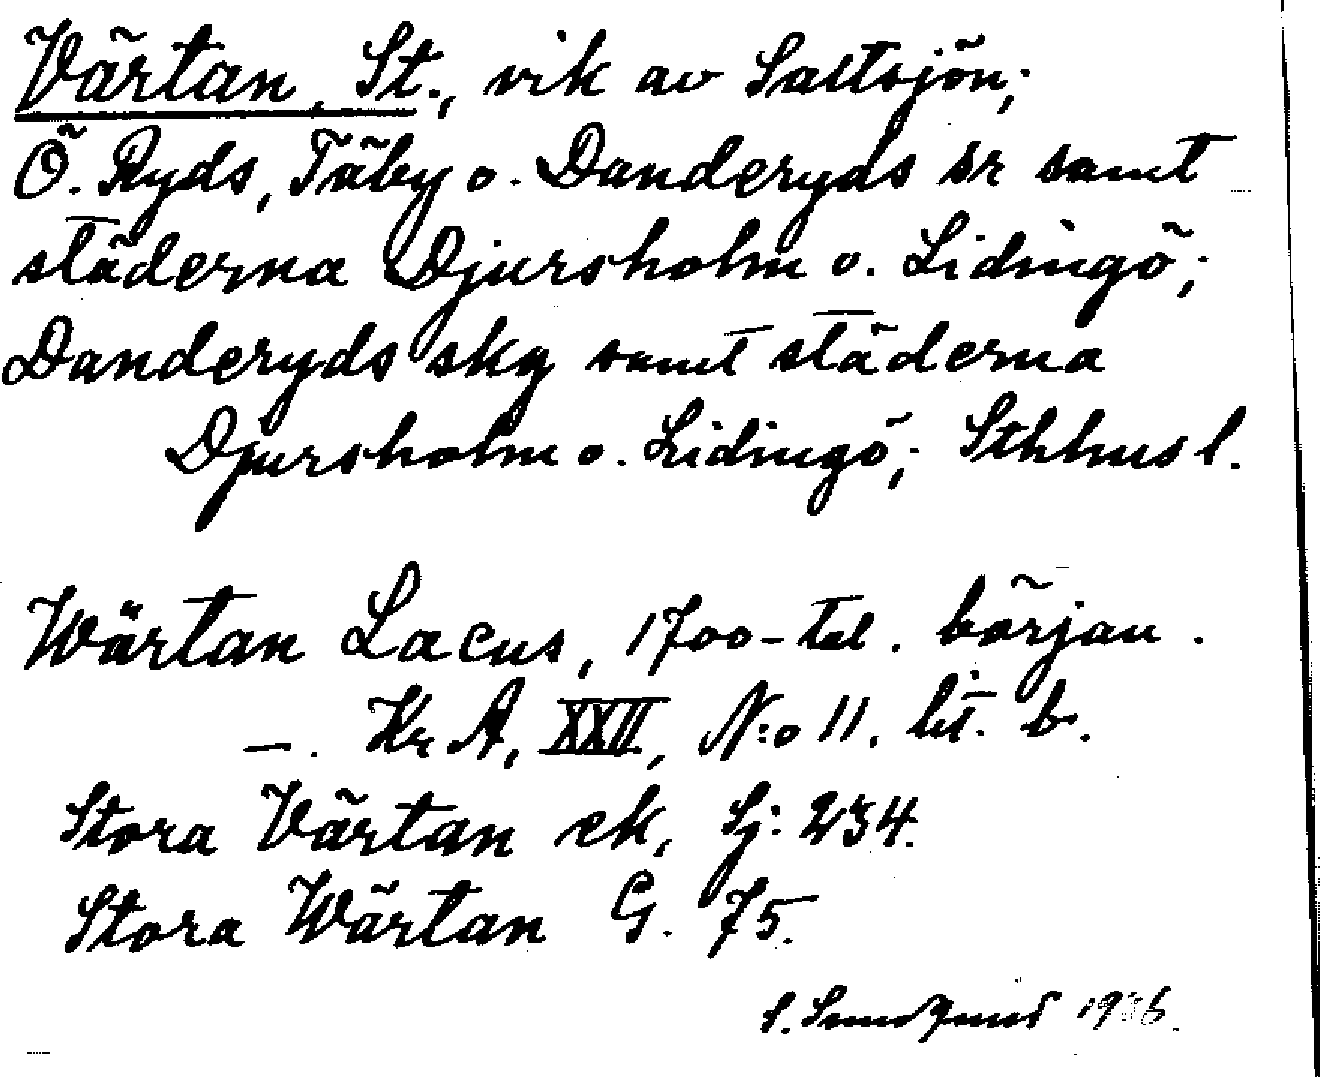 Värtan, St., vik av Saltsjön;
Ö. Ryds, Täby o. Danderyds sr samt
städerna Djursholm o. Lidingö;
Danderyds skg samt städerna
Djursholm o. Lidingö; Sthhus l.
Wärtan Lacus, 1700-tal. början.
—. Kr A, XXII, N:o 11. lit. b.
Stora Värtan ek, Sj: 234.
Stora Wärtan G. 75.
S. 1936.